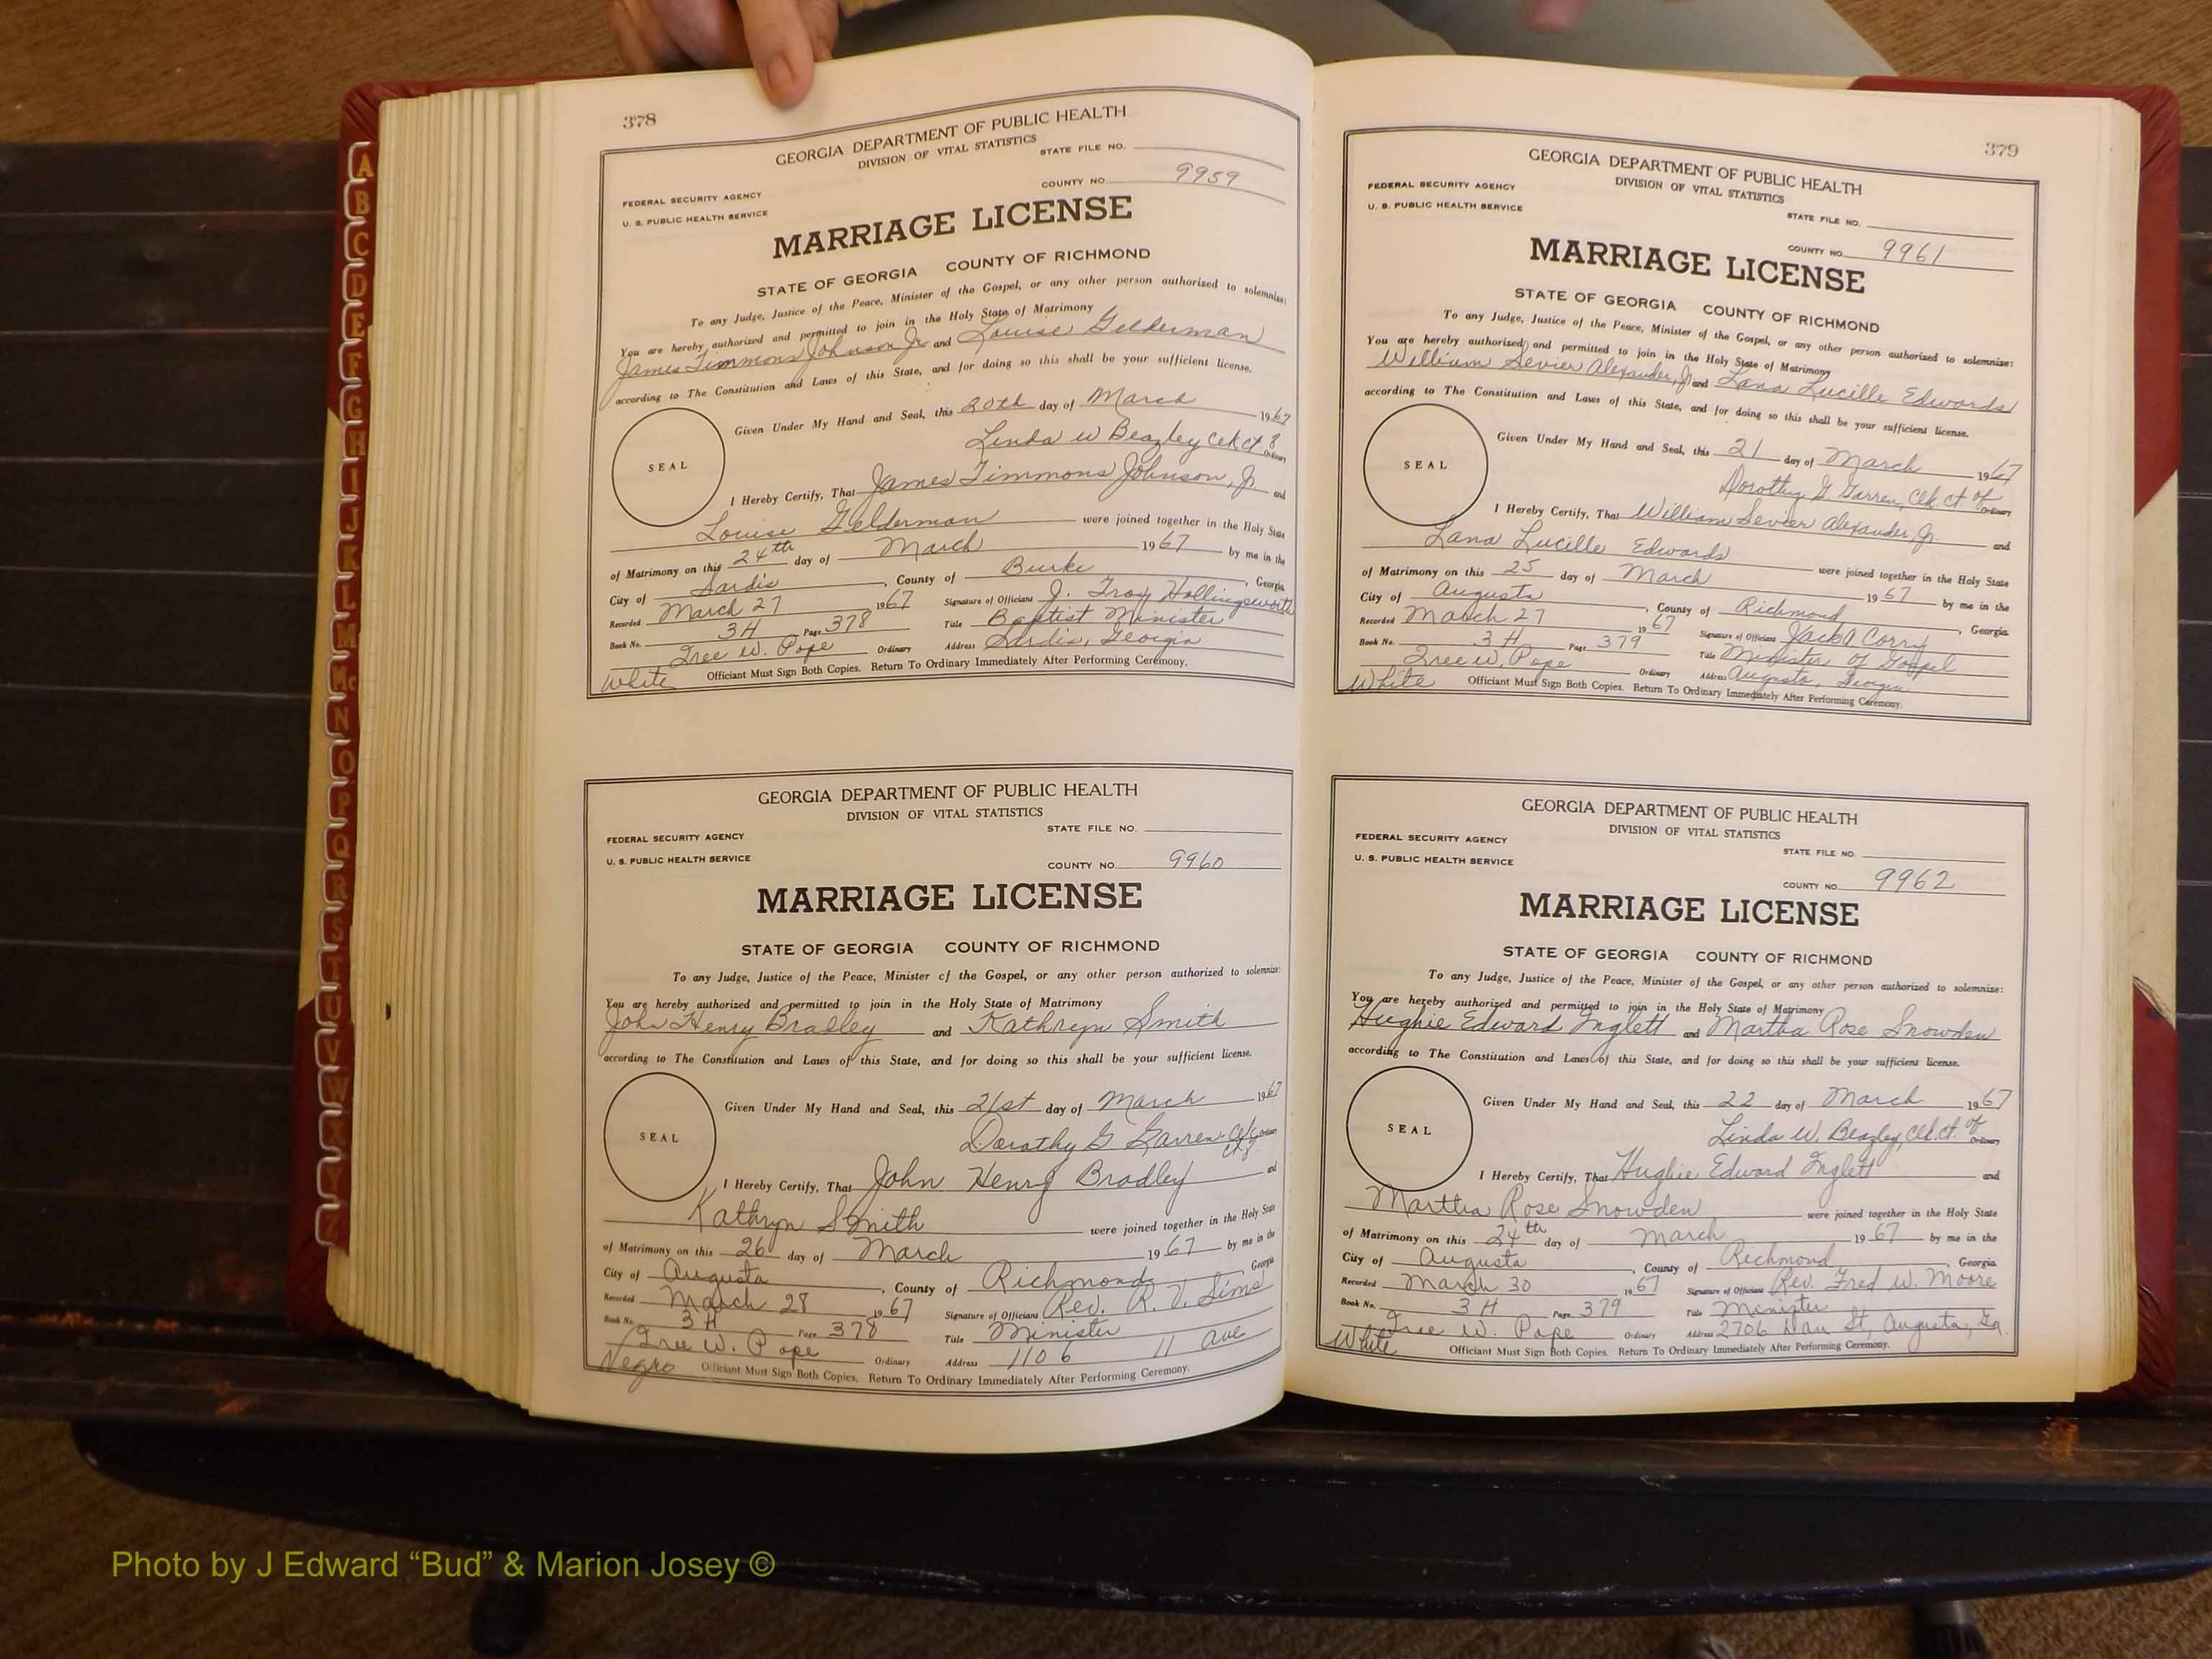 378
GEORGIA DEPARTMENT OF PUBLIC HEALTH
DIVISION OF VITAL STATISTICS
STATE FILE NO.
FEDERAL SECURITY AGENCY
COUNTY NO. 9959
U. S. PUBLIC HEALTH SERVICE
MARRIAGE LICENSE
STATE OF GEORGIA COUNTY OF RICHMOND
To any Judge, Justice of the Peace, Minister of the Gospel, or any other person authorized to solemnize:
You are hereby authorized and permitted to join in the Holy State of Matrimony
James Timmons Johnson Jr and Louise Gelderman
according to The Constitution and Laws of this State, and for doing so this shall be your sufficient license.
Given Under My Hand and Seal, this 20th day of March 1967
Linda W Beazley Clk ct of Ordinary
SEAL
I Hereby Certify, That James Timmons Johnson, Jr. and
Louise Gelderman were joined together in the Holy State
of Matrimony on this 24th day of March 1967 by me in the
City of Sardis, County of Burke, Georgia
Recorded March 27 1967 Signature of Officiant J. Troy Hollingsworth
Book No. 3H Page 378 Title Baptist Minister
Tree W. Pope Ordinary Address Sardis, Georgia
White Officiant Must Sign Both Copies. Return To Ordinary Immediately After Performing Ceremony.
GEORGIA DEPARTMENT OF PUBLIC HEALTH
DIVISION OF VITAL STATISTICS
STATE FILE NO.
FEDERAL SECURITY AGENCY
U. S. PUBLIC HEALTH SERVICE
COUNTY NO. 9960
MARRIAGE LICENSE
STATE OF GEORGIA COUNTY OF RICHMOND
To any Judge, Justice of the Peace, Minister of the Gospel, or any other person authorized to solemnize:
You are hereby authorized and permitted to join in the Holy State of Matrimony
John Henry Bradley and Kathryn Smith
according to The Constitution and Laws of this State, and for doing so this shall be your sufficient license.
Given Under My Hand and Seal, this 21st day of March 1967
Dorothy G. Garren Clk Ordinary
SEAL
I Hereby Certify, That John Henry Bradley and
Kathryn Smith were joined together in the Holy State
of Matrimony on this 26 day of March 1967 by me in the
City of Augusta, County of Richmond, Georgia
Recorded March 28 1967 Signature of Officiant Rev. R. V. Sims
Book No. 3H Page 378 Title Minister
Tree W. Pope Ordinary Address 1106 11 ave
Negro Officiant Must Sign Both Copies. Return To Ordinary Immediately After Performing Ceremony.
379
GEORGIA DEPARTMENT OF PUBLIC HEALTH
DIVISION OF VITAL STATISTICS
FEDERAL SECURITY AGENCY
U. S. PUBLIC HEALTH SERVICE
STATE FILE NO.
COUNTY NO. 9961
MARRIAGE LICENSE
STATE OF GEORGIA COUNTY OF RICHMOND
To any Judge, Justice of the Peace, Minister of the Gospel, or any other person authorized to solemnize:
You are hereby authorized and permitted to join in the Holy State of Matrimony
William Sevier Alexander, Jr and Lana Lucille Edwards
according to The Constitution and Laws of this State, and for doing so this shall be your sufficient license.
Given Under My Hand and Seal, this 21 day of March 1967
Dorothy G. Garren, Clk. ct of Ordinary
SEAL
I Hereby Certify, That William Sevier Alexander, Jr. and
Lana Lucille Edwards were joined together in the Holy State
of Matrimony on this 25 day of March 1967 by me in the
City of Augusta, County of Richmond, Georgia
Recorded March 27 1967 Signature of Officiant Jack A Corry
Book No. 3H Page 379 Title Minister of Gospel
Tree W. Pope Ordinary Address Augusta, Georgia
White Officiant Must Sign Both Copies. Return To Ordinary Immediately After Performing Ceremony.
GEORGIA DEPARTMENT OF PUBLIC HEALTH
DIVISION OF VITAL STATISTICS
FEDERAL SECURITY AGENCY
STATE FILE NO.
U. S. PUBLIC HEALTH SERVICE
COUNTY NO. 9962
MARRIAGE LICENSE
STATE OF GEORGIA COUNTY OF RICHMOND
To any Judge, Justice of the Peace, Minister of the Gospel, or any other person authorized to solemnize:
You are hereby authorized and permitted to join in the Holy State of Matrimony
Hughie Edward Inglett and Martha Rose Snowden
according to The Constitution and Laws of this State, and for doing so this shall be your sufficient license.
Given Under My Hand and Seal, this 22 day of March 1967
Linda W. Beazley, Clk. ct. of Ordinary
SEAL
I Hereby Certify, That Hughie Edward Inglett and
Martha Rose Snowden were joined together in the Holy State
of Matrimony on this 24th day of March 1967 by me in the
City of Augusta, County of Richmond, Georgia
Recorded March 30 1967 Signature of Officiant Rev. Fred W. Moore
Book No. 3H Page 379 Title Minister
Tree W. Pope Ordinary Address 2706 St, Augusta, Ga.
White Officiant Must Sign Both Copies. Return To Ordinary Immediately After Performing Ceremony.
A
B
C
D
E
F
G
H
I
J
K
L
M
Mc
N
O
P
Q
R
S
T
U
V
W
X
Y
Z
Photo by J Edward “Bud” & Marion Josey ©